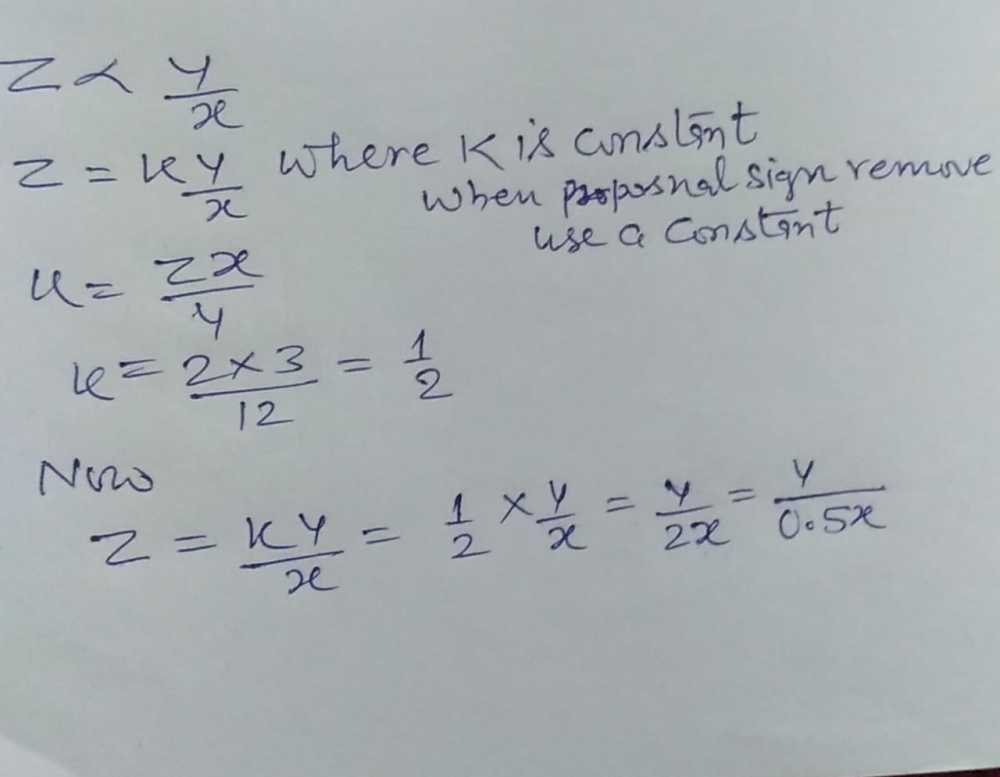 Z ∝ y/x
Z = K y/x where K is constant
when proposnal sign remove
use a constant
K = Zx/y
K = 2×3/12 = 1/2
Now
Z = Ky/x = 1/2 × y/x = y/2x = y/0.5x